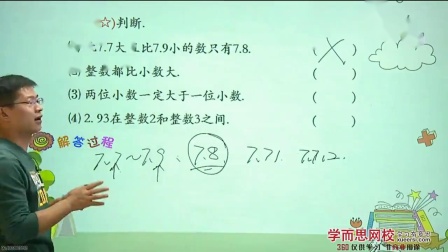 ☆)判断.
7.7大 比7.9小的数只有7.8. (×)
整数都比小数大. ( )
(3) 两位小数一定大于一位小数. ( )
(4) 2.93在整数2和整数3之间. ( )
解答过程
7.7~7.9、7.8 7.71. 7.712.
学而思网校